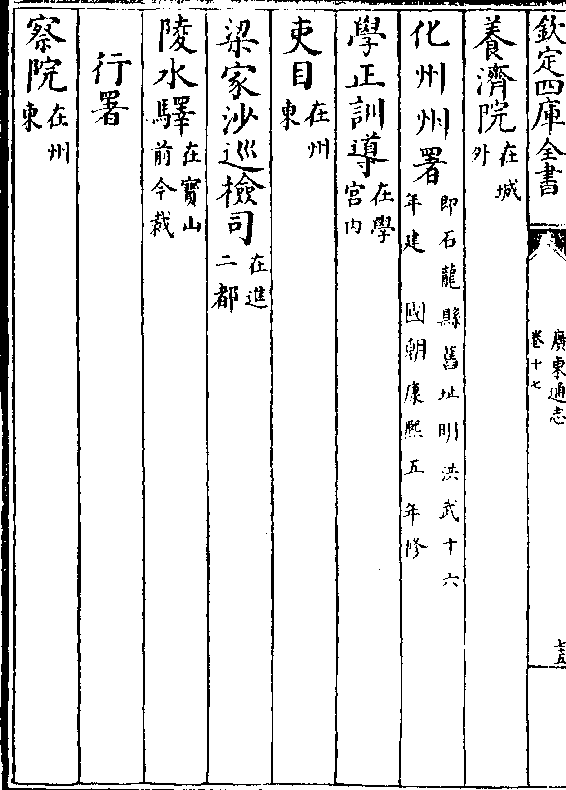 欽定四庫全書
廣東通志
卷十七
七五
養濟院在城外
化州州署即石龍縣舊址明洪武十六年建 國朝康熙五年修
學正訓導在學宮内
吏目在州東
梁家沙巡檢司在進二都
陵水驛在寳山前今裁
行署
察院在州東